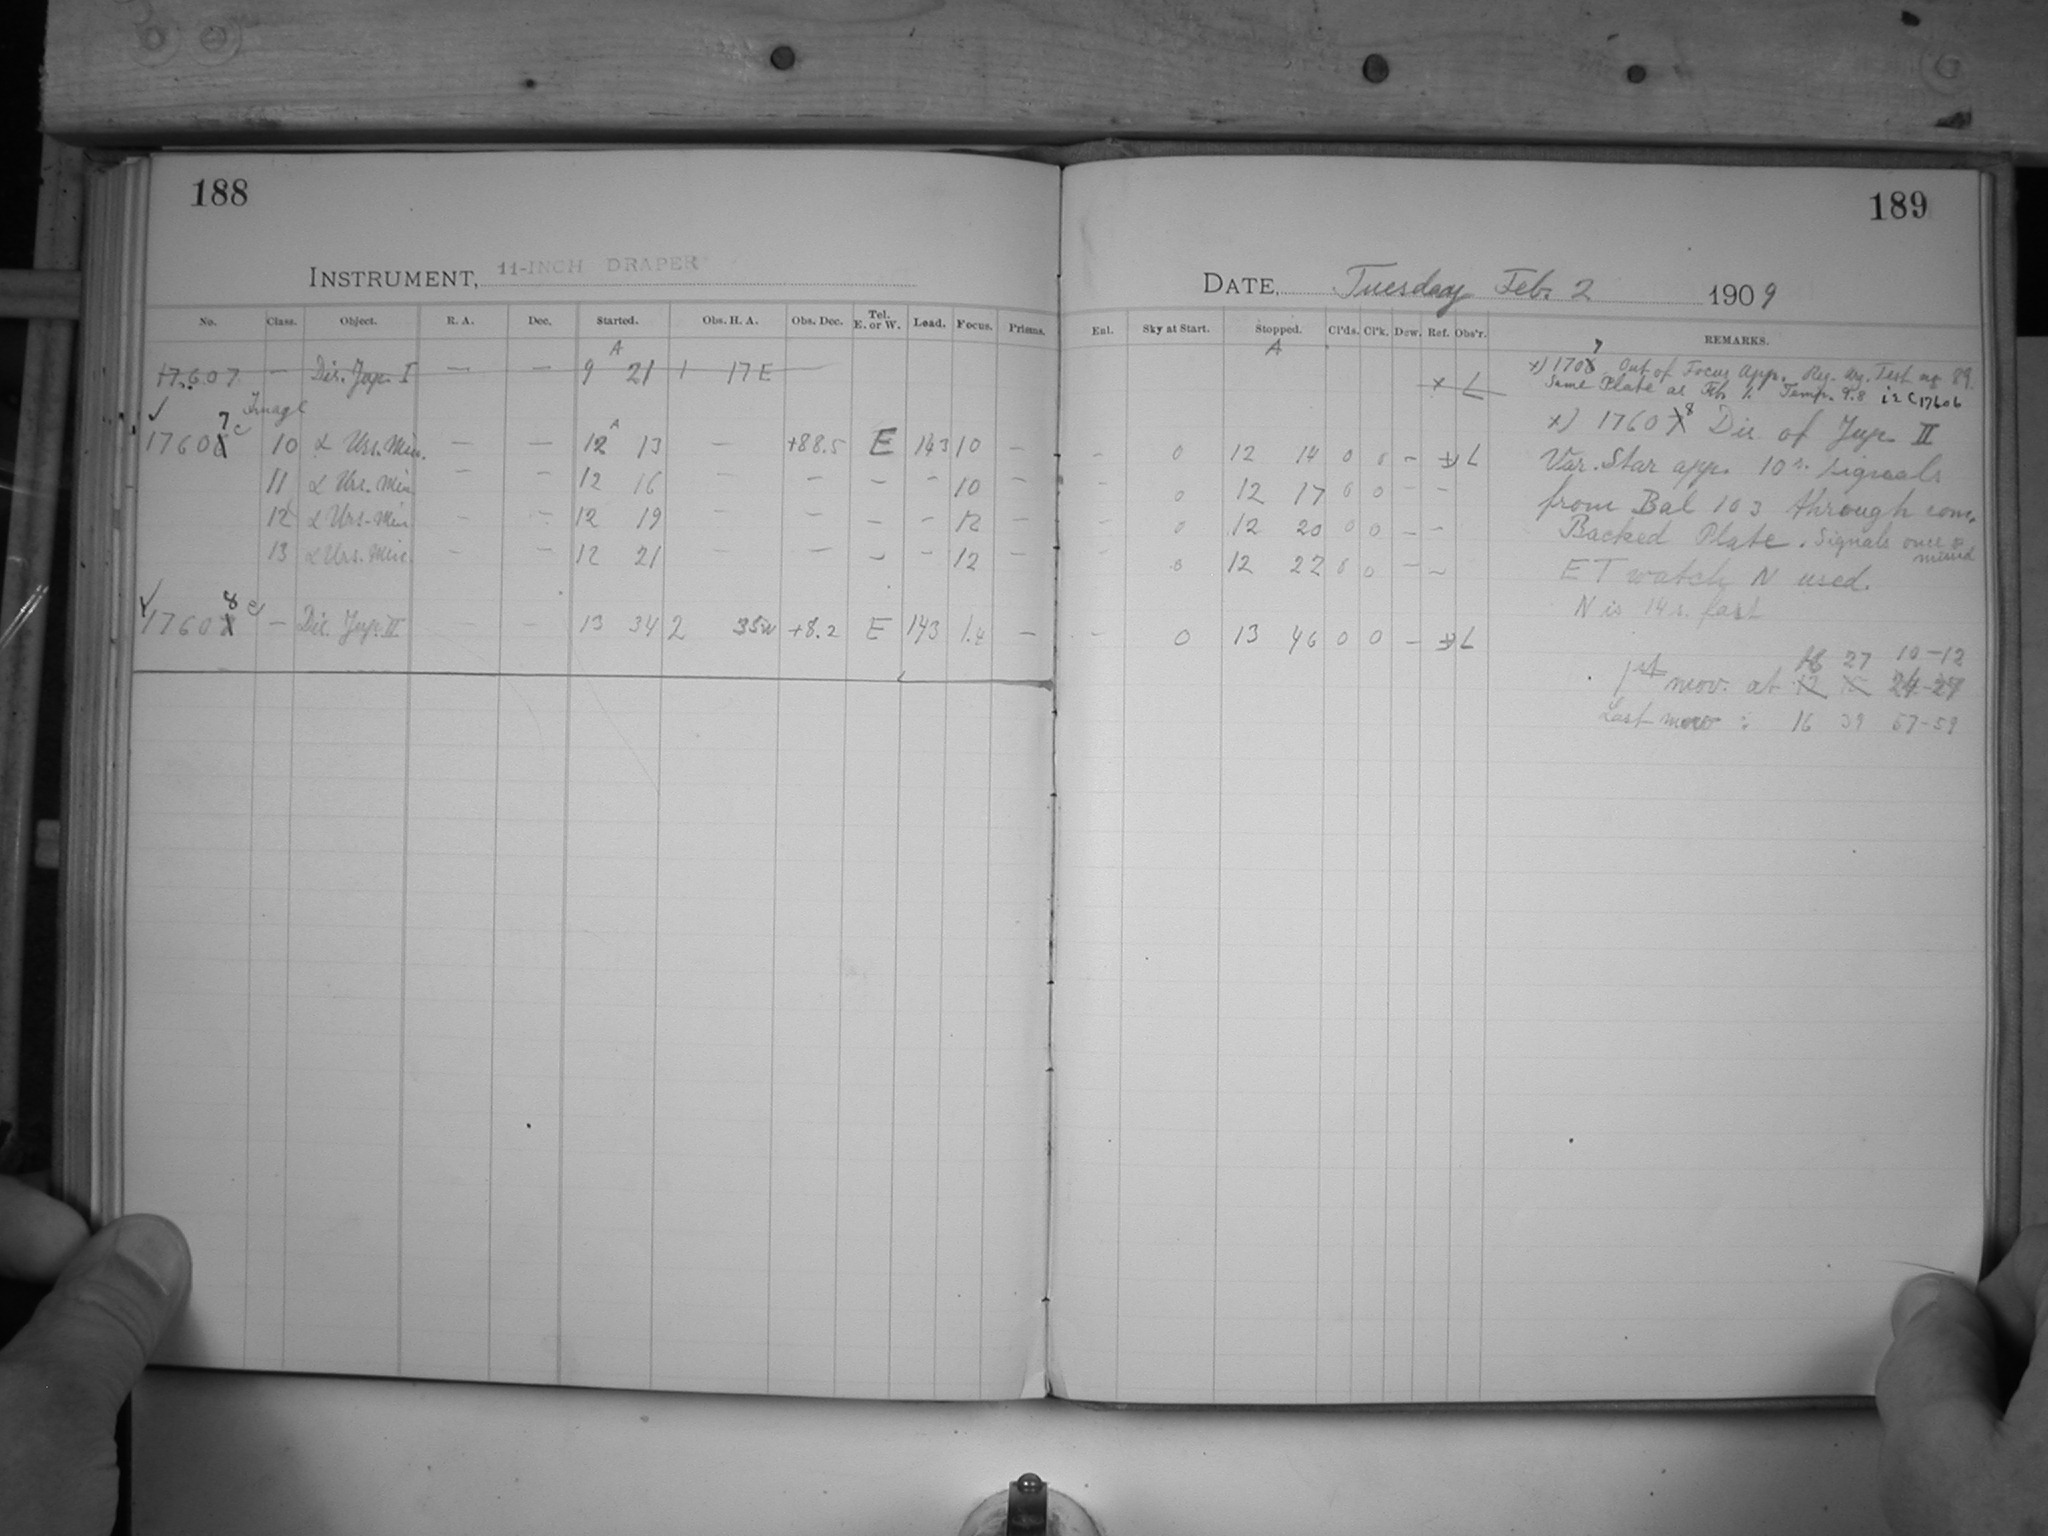 188
INSTRUMENT, 11-INCH DRAPER
No. Class. Object. R. A. Dec. Started. Obs. H. A. Obs. Dec. Tel. E. or W. Load. Focus. Prisms.
A
17607 — Dir. Jup. I — — 9 21 1 17 E
Image
17608 7 c 10 α Urs. Min. — — 12 A 13 — +88.5 E 143 10 —
11 α Urs. Min. — — 12 16 — — — — 10 —
12 α Urs. Min — — 12 19 — — — — 12 —
13 α Urs. Min. — — 12 21 — — — — 12 —
1760 8 c — Dir. Jup. II — — 13 34 2 35 W +8.2 E 143 1.4 —
189
DATE, Tuesday Feb. 2 1909
Enl. Sky at Start. Stopped. Cl'ds. Cl'k. Dew. Ref. Obs'r. REMARKS.
A
x L
– 0 12 14 0 0 – x) L
– 0 12 17 0 0 – –
– 0 12 20 0 0 – –
– 0 12 22 0 0 – –
– 0 13 46 0 0 – x) L
x) 1708 7 Out of Focus App. Test no 89.
Same Plate as Feb 1. Temp. 9.8 is C17606
x) 17607 8 Dir of Jup II
Var. Star app. 10 s. signals
from Bal 103 through com.
Backed Plate. Signals once
missed
ET watch N used.
N is 14 s. fast
16 27 10–12
1st mov. at 12 15 24–27
Last mov : 16 39 57–59